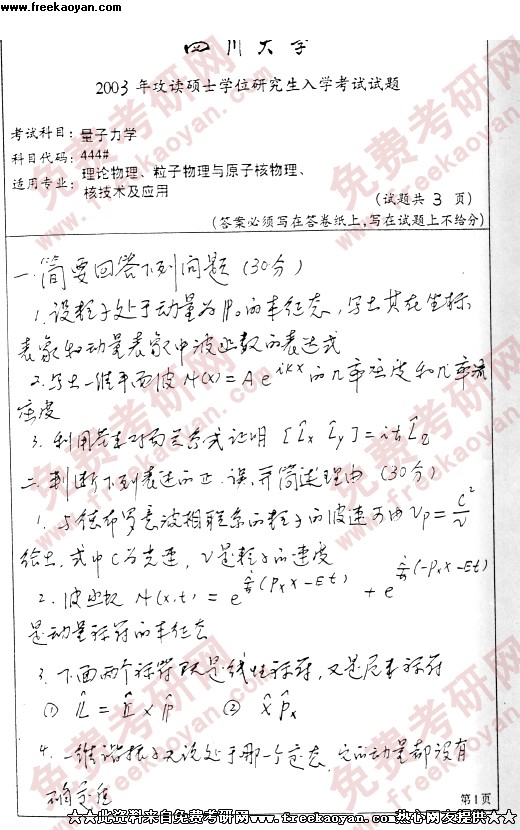 www.freekaoyan.com
四川大学
2003 年攻读硕士学位研究生入学考试试题
考试科目：量子力学
科目代码：444#
适用专业：理论物理、粒子物理与原子核物理、
核技术及应用
（试题共 3 页）
（答案必须写在答卷纸上,写在试题上不给分）
一.简要回答下列问题（30分）
1.设粒子处于动量为P₀的本征态，写出其在坐标
表象和动量表象中波函数的表达式
2.写出一维平面波ψ(x)=Ae^{ikx}的几率密度和几率流
密度
3.利用基本对易关系式证明 [L̂x L̂y]=iħL̂z
二.判断下列表述的正.误,并简述理由（30分）
1.与德布罗意波相联系的粒子的波速可由 Vp=c²/v
给出，式中C为光速，v是粒子的速度
2.波函数 ψ(x,t)=e^{i/ħ(Pxx-Et)}+e^{i/ħ(-Pxx-Et)}
是动量算符的本征态
3.下面两个算符既是线性算符，又是厄米算符
① L̂=r̂×P̂ ② x̂P̂x
4.一维谐振子无论处于那一个定态，它的动量都没有
确定值
第1页
★★此资料来自免费考研网www.freekaoyan.com热心网友提供★★